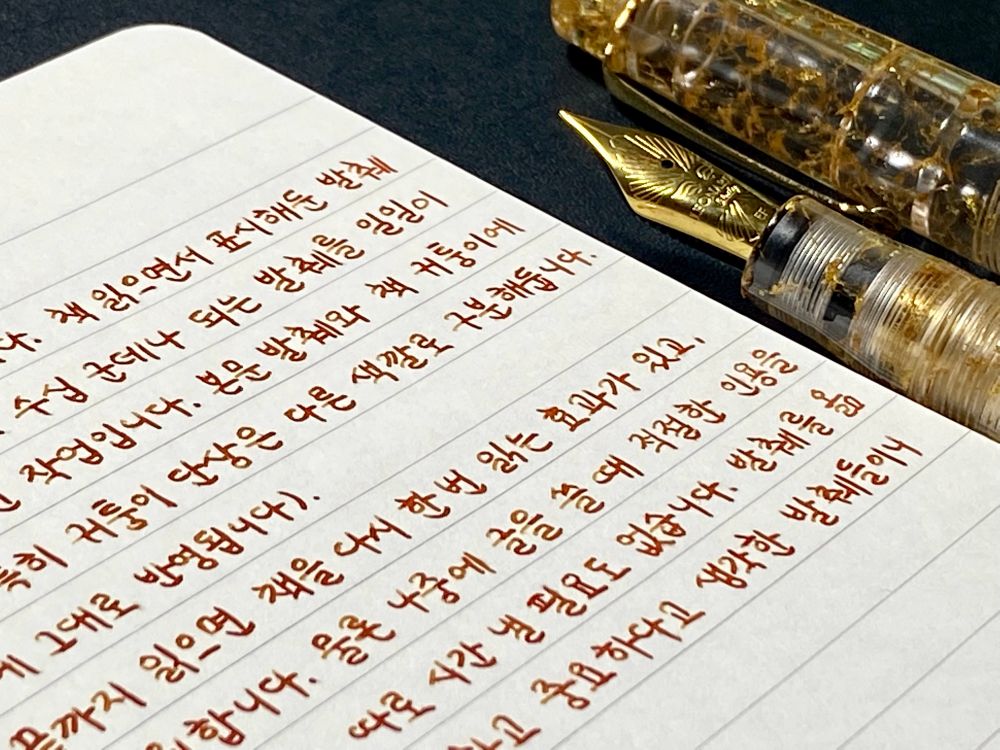 다. 책 읽으면서 표시해둔 발췌
수십 군데나 되는 발췌를 일일이
작업입니다. 본문 발췌와 책 귀퉁이에
특히 귀퉁이 단상은 다른 색깔로 구분해둡니다.
그대로 반영됩니다).
끝까지 읽으면 책을 다시 한 번 읽는 효과가 있고,
합니다. 물론 나중에 글을 쓸 때 적절한 인용을
따로 시간 낼 필요도 없습니다. 발췌를 옮
하고 중요하다고 생각한 발췌들이니
EF